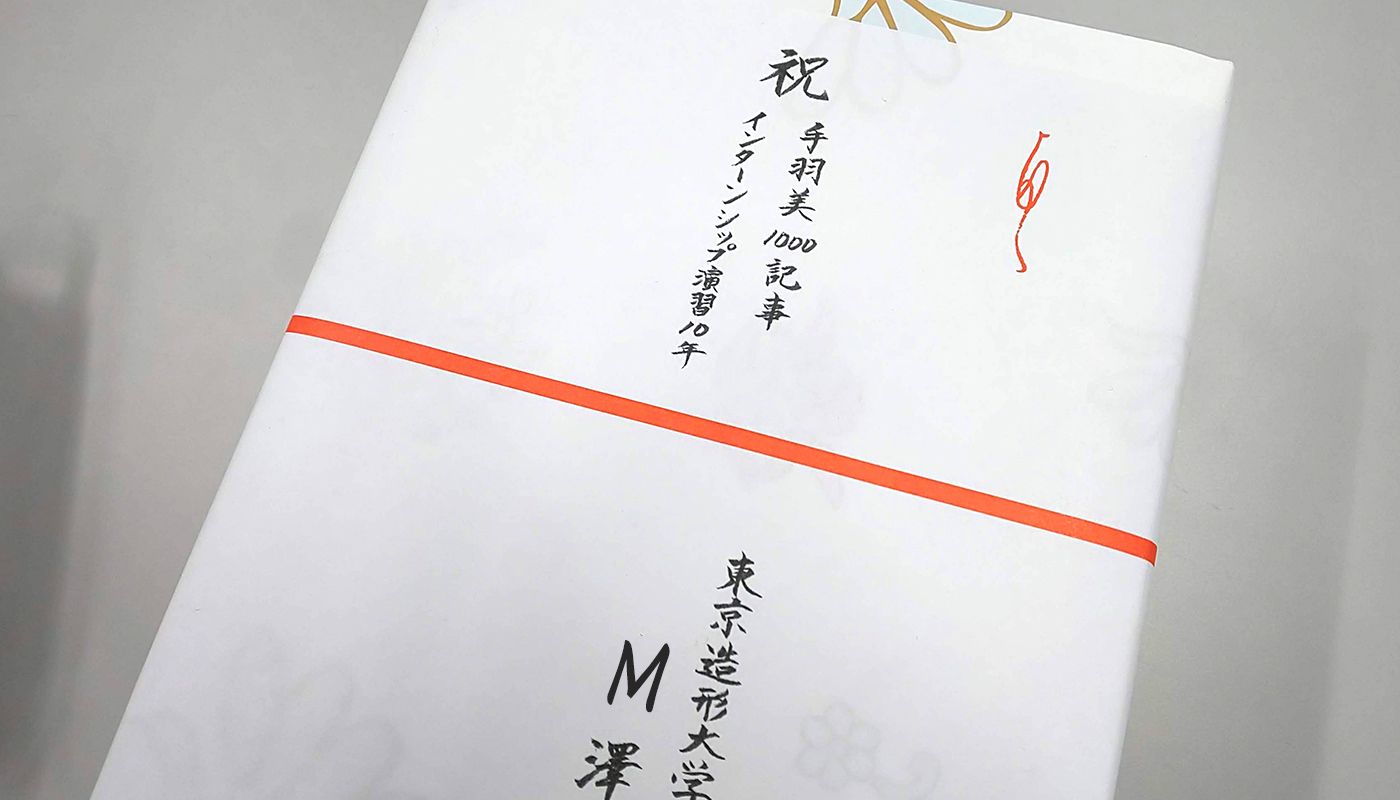 祝
手羽美1000記事
インターンシップ演習10年
東京造形大学
M澤